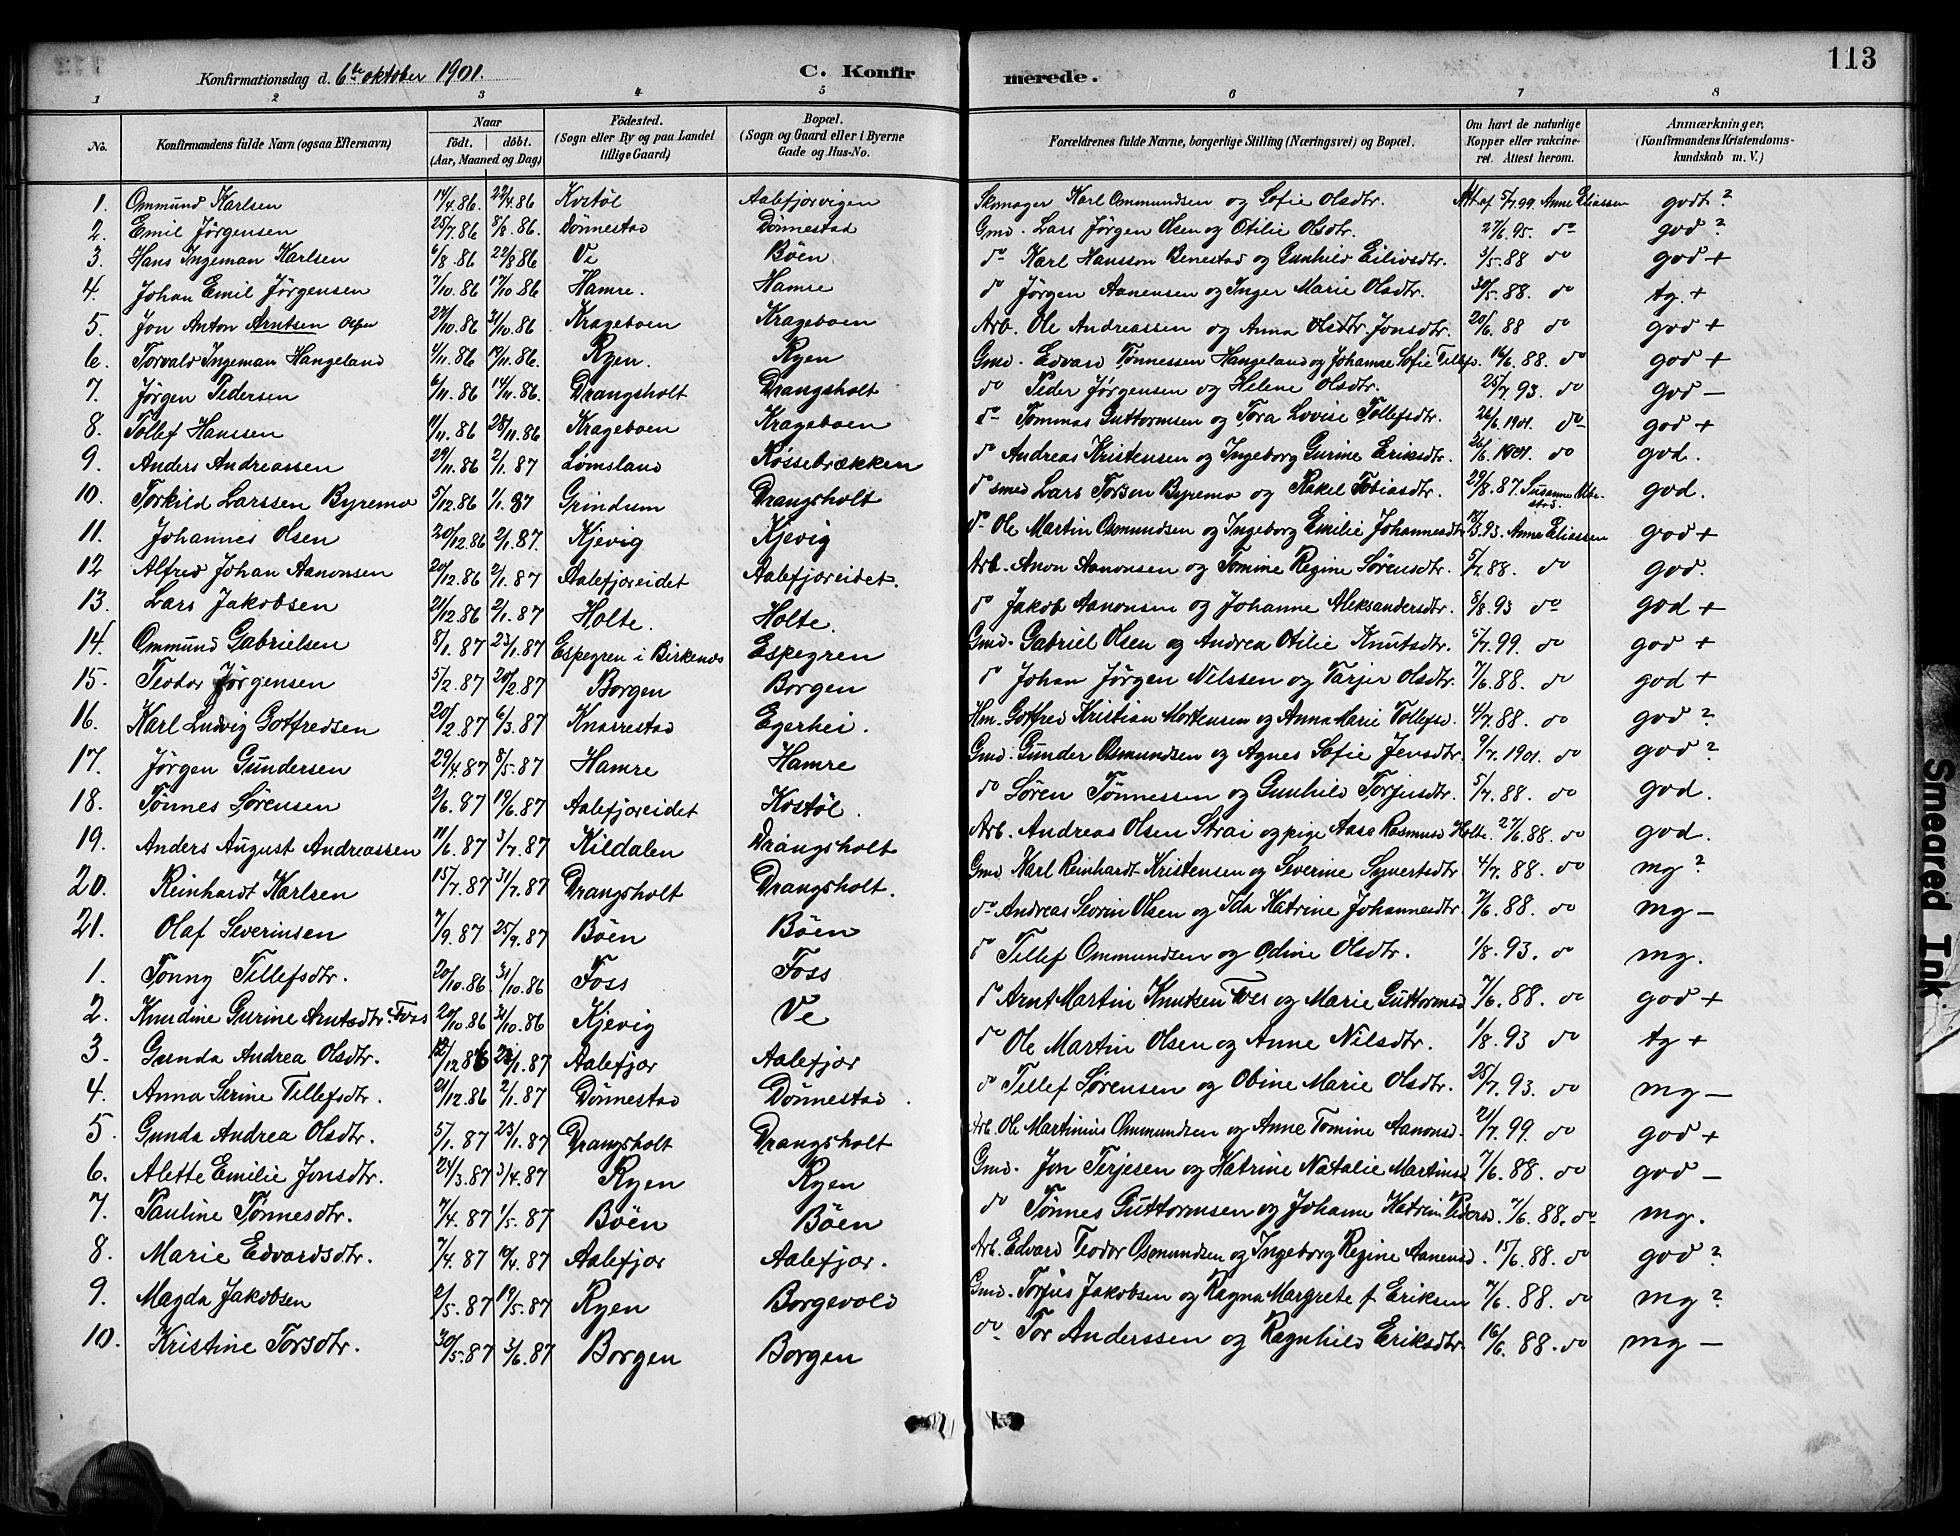 113
Konfirmationsdag d. 6te oktober 1901. C. Konfirmerede.
1 2 3 4 5 6 7 8
No. Konfirmandens fulde Navn (ogsaa Efternavn) Naar født. døbt. (Aar, Maaned og Dag) Fødested. (Sogn eller By og paa Landet tillige Gaard) Bopæl. (Sogn og Gaard eller i Byerne Gade og Hus-No. Forældrenes fulde Navne, borgerlige Stilling (Næringsvei) og Bopæl. Om havt de naturlige Kopper eller vakcineret. Attest herom. Anmærkninger. (Konfirmandens Kristendomskundskab m. V.)
1. Ommund Karlsen 14/4.86. 22/4.86 Kvstøl Aalefjorvigen Skomager Karl Ommundsen og Sofie Olsdtr. Att af 5/7.99. Anne Eliassen godt ?
2. Emil Jørgensen 25/7.86 8/8.86. Dønnestad Dønnestad Gmd. Lars Jørgen Olsen og Otilie Olsdtr. 27/6.95. do god ?
3. Hans Ingeman Karlsen 6/8.86 22/8.86 Ve Bøen do Karl Hansson Benestad og Gunhild Eilivsdtr. 3/5.88 do god +
4. Johan Emil Jørgensen 7/10.86 17/10.86 Hamre. Hamre do Jørgen Aanensen og Inger Marie Olsdtr. 30/5.88. do tg +
5. Jon Anton Arntsen Olsen 27/10.86 31/10.86 Krageboen Krageboen Arb. Ole Andreassen og Anna Olsdtr Jonsdtr. 20/6.88 do god +
6. Torvald Ingeman Hangeland 4/11.86 19/11.86. Ryen. Ryen Gmd. Edvard Tønnessen Hangeland og Johanne Sofie Tellefs. 16/6.88. do god +
7. Jørgen Pedersen 6/11.86 14/11.86. Drangsholt Drangsholt do Peder Jørgensen og Helene Olsdtr. 25/7.93. do god —
8. Tollef Hanssen 11/11.86 28/11.86 Krageboen Krageboen do Tommas Guttormsen og Tora Lovise Tollefsdtr. 26/6.1901. do god +
9. Anders Andreassen 29/11.86 2/1.87 Lømsland Røssebrækken do Andreas Kristensen og Ingeborg Gurine Eriksdtr. 26/6.1901. do god.
10. Torkild Larssen Byremo 5/12.86 1/1.87 Grindum Drangsholt do smed Lars Torsen Byremo og Rakel Tobiasdtr. 29/8.87. Susanne god.
11. Johannes Olsen 20/12.86 2/1.87. Kjevig Kjevig do Ole Martin Osmundsen og Ingeborg Emilie Johannesdtr 3.93. Anne Eliassen god +
12 Alfred Johan Aanonsen 20/12.86 2/1.87 Aalefjoreidet Aalefjoreidet. Arb. Anon Aanonsen og Tomine Regine Sørensdtr. 5/7.88. do god.
13. Lars Jakobsen 21/12.86 2/1.87 Holte. Holte. do Jakob Aanonsen og Johanne Aleksandersdtr. 8/8.93 do god +
14. Ommund Gabrielsen 8/1.87 23/1.87 Espegren i Birkenes Espegren Gmd. Gabriel Olsen og Andrea Otilie Knutsdtr. 5/7.99. do god +
15. Teodor Jørgensen 5/2.87 20/2.87 Borgen Borgen do Johan Jørgen Nilssen og Tarjer Olsdtr. 7/6.88. do god +
16. Karl Ludvig Gotfredsen 20/2.87 6/3.87 Knarrestad Egerhei. Hm. Gotfred Kristian Mortensen og Anna Marie Tollefsd. 4/7.88. do god ?
17. Jørgen Gundersen 29/4.87 8/5.87 Hamre Hamre Gmd. Gunder Osmundsen og Agnes Sofie Jensdtr. 3/7.1901. do god ?
18. Tønnes Sørensen 2/6.87 19/6.87 Aalefjoreidet Kvstøl. do Søren Tønnessen og Gunhild Torjusdtr. 5/7.88. do god.
19. Anders August Andreassen 11/6.87 3/7.87 Kildalen Drangsholt Arb. Andreas Olsen Strai og pige Aase Rasmusd Holte. 27/6.88. do god.
20. Reinhardt Karlsen 15/7.87 31/7.87 Drangsholt Drangsholt. Gmd Karl Reinhardt Kristensen og Severine Syvertsdtr 4/7.88. do mg ?
21. Olaf Severinsen 7/9.87 25/9.87 Bøen Bøen do Andreas Severin Olsen og Ida Katrine Johannesdtr. 7/6.88. do mg —
1. Tonny Tellefsdtr. 20/10.86 31/10.86 Foss Foss do Tellef Ommundsen og Odine Olsdtr. 1/8.93. do mg.
2. Knudine Gurine Arntsdtr. Foss 20/10.86 31/10.86 Kjevig Ve do Arnt Martin Knutsen Foss og Marie Guttormsd 7/6.88. do god +
3. Gunda Andrea Olsdtr. 12/12.86 23/1.87 Aalefjor Aalefjor do Ole Martin Olsen og Anne Nilsdtr. 1/8.93 do tg +
4. Anna Serine Tellefsdtr. 21/12.86 2/1.87 Dønnestad Dønnestad. do Tellef Sørensen og Obine Marie Olsdtr. 25/7.93. do mg —
5. Gunda Andrea Olsdtr. 5/1.87 23/1.87 Drangsholt Drangsholt Arb. Ole Martinius Ommundsen og Anne Tomine Aanonsd. 21/7.99. do god +
6. Alette Emilie Jonsdtr. 24/3.87 3/4.87 Ryen Ryen Gmd. Jon Terjesen og Katrine Natalie Martinsd 7/6.88. do god —
7. Pauline Tønnesdtr. 7/4.87 1/5.87 Bøen Bøen do Tønnes Guttormsen og Johanne Katrine Pedersd. 7/6.88. do mg.
8. Marie Edvardsdtr. 7/4.87 10/4.87 Aalefjor Aalefjor. Arb. Edvard Teodor Osmundsen og Ingeborg Regine Aanensd. 15/6.88. do god ?
9. Magda Jakobsen 2/5.87 19/5.87 Ryen Borgevold Gmd. Torjus Jakobsen og Ragna Margrete f. Eriksen 7/6.88. do mg ?
10. Kristine Torsdtr. 30/5.87 3/6.87 Borgen Borgen do Tor Anderssen og Ragnhild Eriksdtr. 16/6.88. do mg —
Smeared Ink